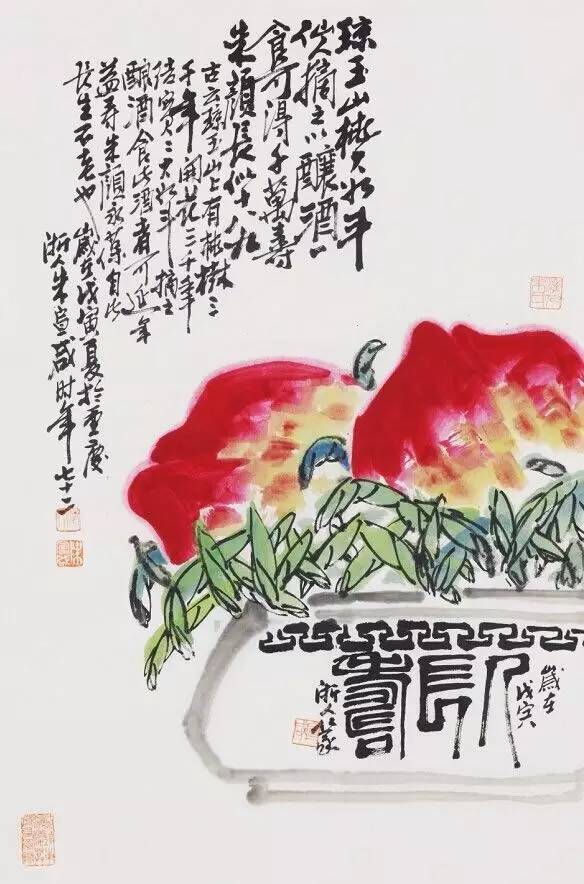 琼玉山桃大如斗
仸摘之以釀酒一
食可得千萬壽
朱顏長似十八九
古云琼玉山上有桃樹三
千年開花三千年
結實大如斗摘之
釀酒食此酒者可延年
益壽朱顏永葆自此
長生不老也 歲在戊寅夏於重慶
浙人朱宣咸時年七十二
歲在
戊寅
人長壽
浙人